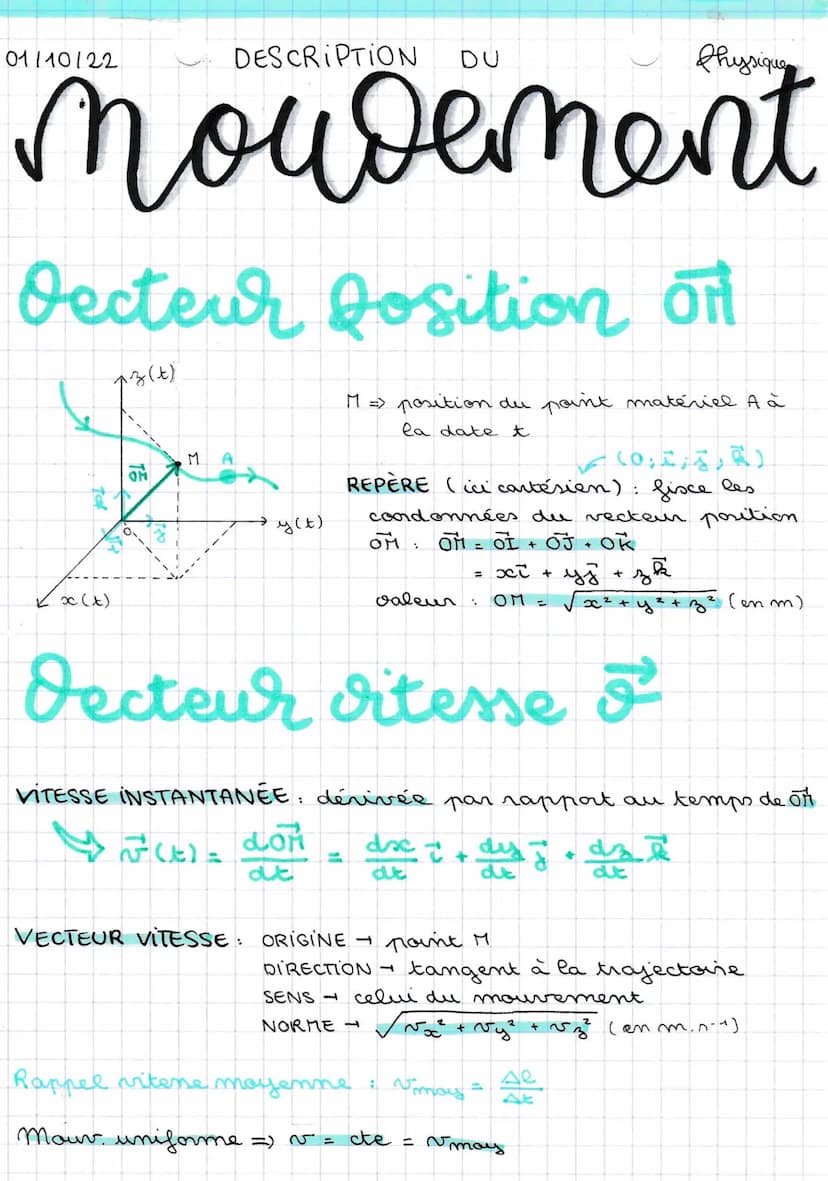 01/10/22 DESCRIPTION DU Physique
Mouvement
Vecteur Position OM⃗
z(t)
M => position du point matériel A à
la date t
M A
OM⃗
(O; i⃗; j⃗; k⃗)
REPÈRE (ici cartésien) : fixe les
k⃗
coordonnées du vecteur position
O j⃗ y(t)
i⃗
OM⃗ : OM⃗ = OI⃗ + OJ⃗ + OK⃗
= xi⃗ + yj⃗ + zk⃗
x(t)
valeur : OM = √(x² + y² + z²) (en m)
Vecteur vitesse v⃗
VITESSE INSTANTANÉE : dérivée par rapport au temps de OM⃗
v⃗(t) = dOM⃗/dt = dx/dt i⃗ + dy/dt j⃗ + dz/dt k⃗
VECTEUR VITESSE : ORIGINE → point M
DIRECTION → tangent à la trajectoire
SENS → celui du mouvement
NORME → √(vx² + vy² + vz²) (en m.s⁻¹)
Rappel vitesse moyenne : vmoy = Δl/Δt
Mouv. uniforme => v = cte = vmoy